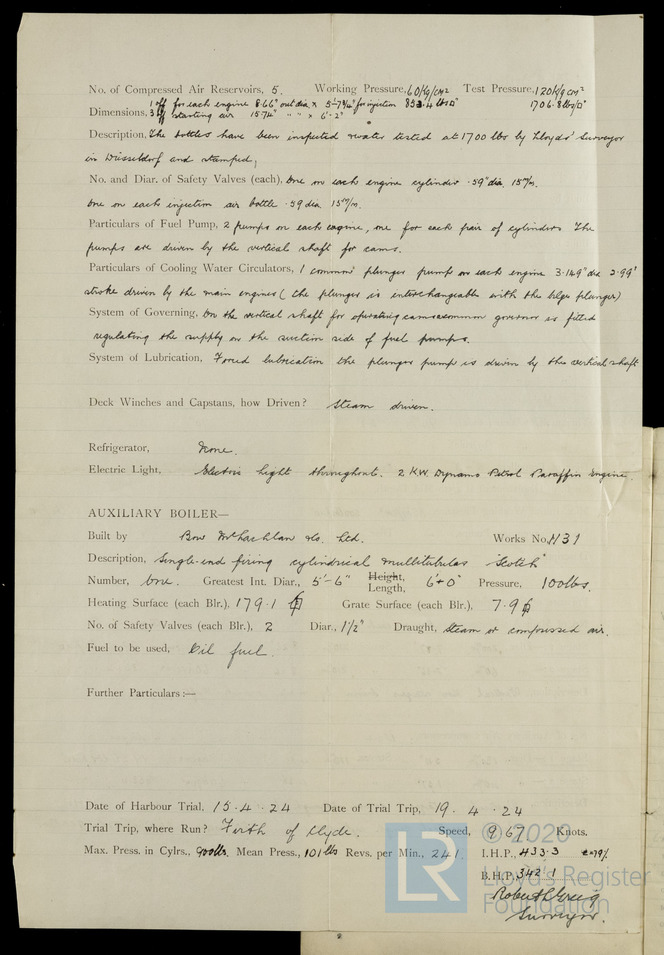 No. of Compressed Air Reservoirs, 5. Working Pressure, 60 Kg/cm² Test Pressure, 120 Kg cm²
1 off for each engine 8.66" out dia x 5'-7¾" for injection 853.4 lbs□" 1706.8 lbs/□"
Dimensions, 3 off starting air 15¾" " " x 6'-2"
Description, The bottles have been inspected & water tested at 1700 lbs by Lloyds' Surveyor
in Düsseldorf and stamped,
No. and Diar. of Safety Valves (each), One on each engine cylinder .59" dia, 15 m/m.
One on each injection air bottle .59 dia 15 m/m.
Particulars of Fuel Pump, 2 pumps on each engine, one for each pair of cylinders The
pumps are driven by the vertical shaft for cams.
Particulars of Cooling Water Circulators, 1 common plunger pump on each engine 3.149" dia 2.99"
stroke driven by the main engines (the plunger is interchangeable with the bilge plunger)
System of Governing, On the vertical shaft for operating cams a common governor is fitted
regulating the supply on the suction side of fuel pumps.
System of Lubrication, Forced lubrication the plunger pump is driven by the vertical shaft
Deck Winches and Capstans, how Driven? Steam driven.
Refrigerator, None.
Electric Light, Electric light throughout. 2 K.W. Dynamo Petrol Paraffin Engine.
AUXILIARY BOILER—
Built by Bow McLachlan & Co. Ltd. Works No. 1131
Description, Single-end firing cylindrical multitubular "Scotch"
Number, One. Greatest Int. Diar., 5'-6" Height, Length, 6'-0" Pressure, 100 lbs.
Heating Surface (each Blr.), 179.1 Grate Surface (each Blr.), 7.9
No. of Safety Valves (each Blr.), 2 Diar., 1½" Draught, Steam or compressed air.
Fuel to be used, Oil fuel.
Further Particulars:—
Date of Harbour Trial, 15.4.24 Date of Trial Trip, 19.4.24
Trial Trip, where Run? Firth of Clyde. Speed, 9.67 Knots.
Max. Press. in Cylrs., 900 lbs. Mean Press., 101 lbs Revs. per Min., 241. I.H.P., 433.3 79%
B.H.P., 342.1
Robert L Greig
Surveyor.
© 2020
LR
Lloyd's Register
Foundation